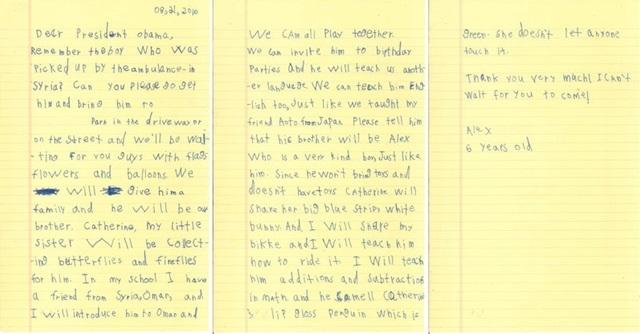 08,21,2010
Dear President obama,
Remember the boy who was
picked up by the ambulance in
Syria? Can you please go get
him and bring him to
Park in the driveway or
on the street and we'll be wai-
ting for you guys with flags
flowers and balloons. We
will give him a
family and he will be our
brother. Catherine, my little
sister will be collect-
ing butterflies and fireflies
for him. In my school I have
a friend from Syria, Omar, and
I will introduce him to Omar and
We can all play together.
We can invite him to birthday
parties and he will teach us anoth-
er language. We can teach him Eng-
lish too, Just like we taught my
friend Aoto from Japan. Please tell him
that his brother will be Alex
who is a very kind boy, Just like
him. Since he won't bring toys and
doesn't have toys Catherine will
share her big blue strips white
bunny. And I will share my
bikke and I will teach him
how to ride it. I will teach
him additions and subtractions
in math and he smell Catherine
lip gloss penguin which is
green. she doesn't let anyone
touch it.
Thank you very much! I can't
wait for you to come!
Alex
6 years old